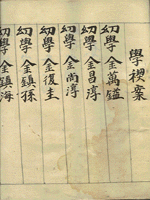 學稧案
幼學金萬鎰
幼學金昌淳
幼學金尚淳
幼學金復圭
幼學金鎮孫
幼學金鎮海